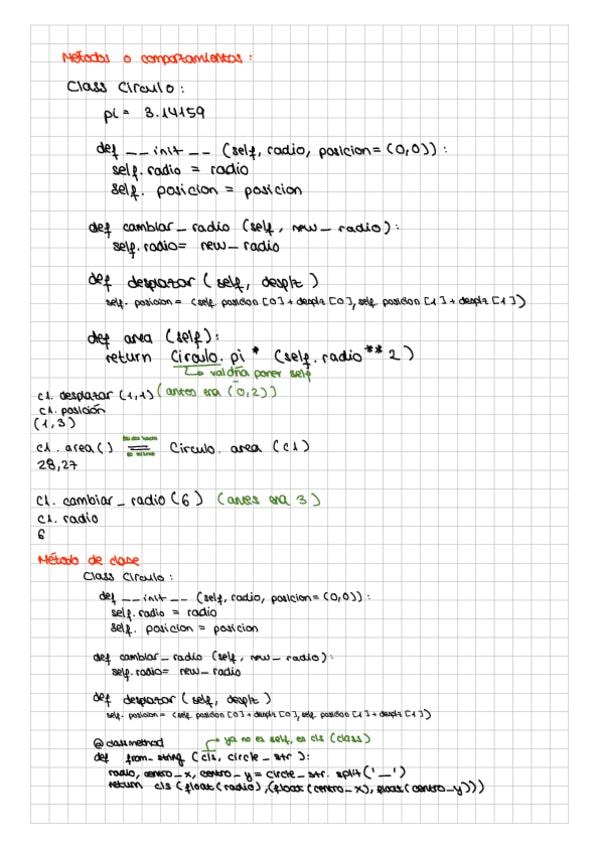 Métodos o comportamientos :
Class Circulo :
pi = 3.14159
def __init__ (self, radio, posicion = (0,0)) :
self.radio = radio
self. posicion = posicion
def cambiar_radio (self, new_radio) :
self.radio= new_radio
def desplazar (self, desplz)
self. posicion = (self. posicion [0] + desplz [0], self. posicion [1] + desplz [1])
def area (self) :
return Circulo. pi * (self. radio ** 2)
valdría poner self
c1. desplazar (1,1) (antes era (0,2))
c1. posición
(1,3)
c1. area () = Circulo. area (c1)
28,27
c1. cambiar_radio (6) (antes era 3)
c1. radio
6
Método de clase
Class Circulo :
def __init__ (self, radio, posicion = (0,0)) :
self.radio = radio
self. posicion = posicion
def cambiar_radio (self, new_radio) :
self.radio= new_radio
def desplazar (self, desplz)
self. posicion = (self. posicion [0] + desplz [0], self. posicion [1] + desplz [1])
@classmethod ya no es self, es cls (class)
def from_string (cls, circle_str) :
radio, centro_x, centro_y = circle_str. split('_')
return cls (float(radio), (float(centro_x), float(centro_y)))